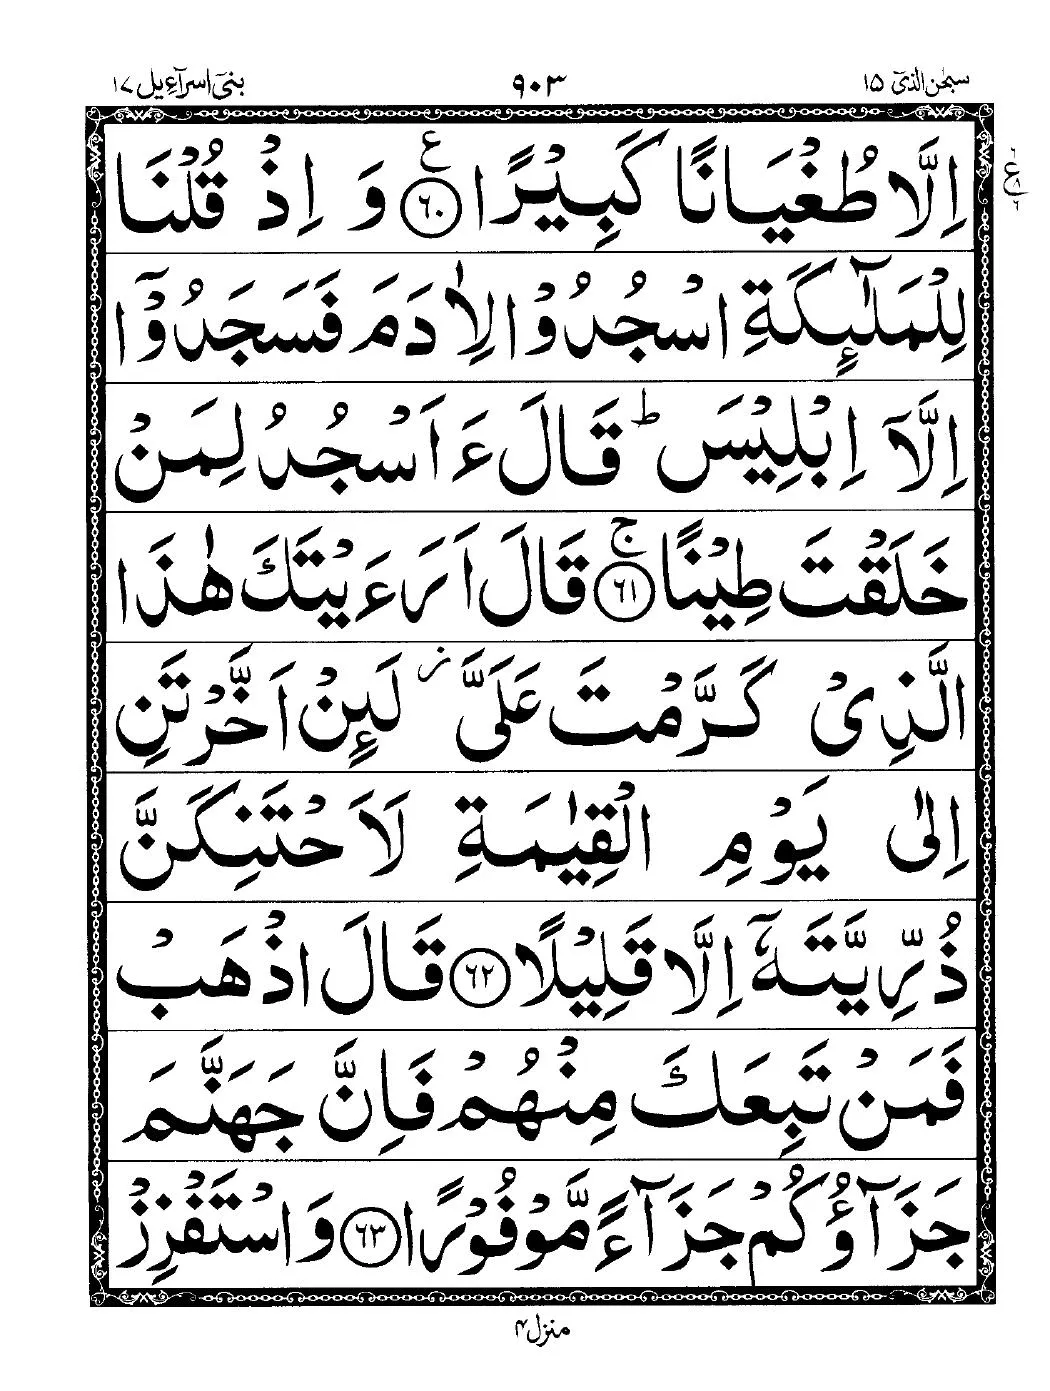 سبحٰن الذیٓ ۱۵
۹۰۳
بنیٓ اسرآءیل ۱۷
اِلَّا طُغْيَانًا كَبِيْرًا ﴿۶۰﴾ ع وَ اِذْ قُلْنَا
ع ۸ ۶
لِلْمَلٰٓىِٕكَةِ اسْجُدُوْا لِاٰدَمَ فَسَجَدُوْٓا
اِلَّاۤ اِبْلِيْسَ ؕ قَالَ ءَاَسْجُدُ لِمَنْ
خَلَقْتَ طِيْنًا ﴿۶۱﴾ ۚ قَالَ اَرَءَيْتَكَ هٰذَا
الَّذِىْ كَرَّمْتَ عَلَىَّ ؗ لَىِٕنْ اَخَّرْتَنِ
اِلٰى يَوْمِ الْقِيٰمَةِ لَاَحْتَنِكَنَّ
ذُرِّيَّتَهٗۤ اِلَّا قَلِيْلًا ﴿۶۲﴾ قَالَ اذْهَبْ
فَمَنْ تَبِعَكَ مِنْهُمْ فَاِنَّ جَهَنَّمَ
جَزَآؤُكُمْ جَزَآءً مَّوْفُوْرًا ﴿۶۳﴾ وَاسْتَفْزِزْ
منزل ۴